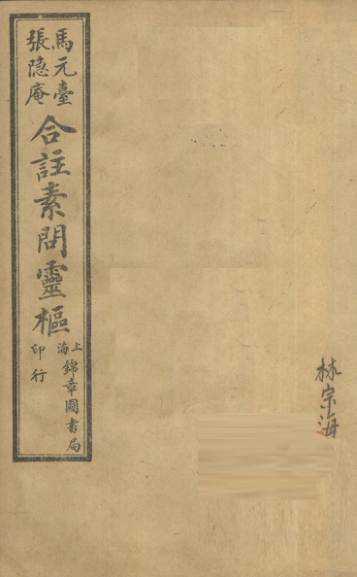 馬元臺
張隐庵
合註素問靈樞
上海
錦章圖書局
印行
林宗海